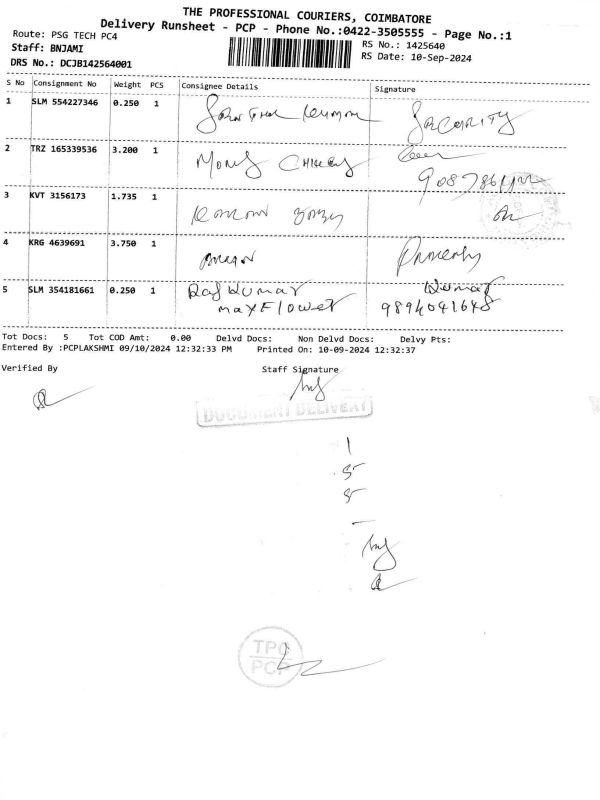 THE PROFESSIONAL COURIERS, COIMBATORE
Delivery Runsheet - PCP - Phone No.:0422-3505555 - Page No.:1
Route: PSG TECH PC4
RS No.: 1425640
Staff: BNJAMI
RS Date: 10-Sep-2024
DRS No.: DCJB142564001
S No Consignment No Weight PCS Consignee Details Signature
1 SLM 554227346 0.250 1 SECURITY
2 TRZ 165339536 3.200 1
3 KVT 3156173 1.735 1
4 KRG 4639691 3.750 1
5 SLM 354181661 0.250 1 Raj Kumar Kumar
maxFlower 9894041648
Tot Docs: 5 Tot COD Amt: 0.00 Delvd Docs: Non Delvd Docs: Delvy Pts:
Entered By :PCPLAKSHMI 09/10/2024 12:32:33 PM Printed On: 10-09-2024 12:32:37
Verified By Staff Signature
DOCUMENT DELIVERY
1
5
5
TPC
PCP